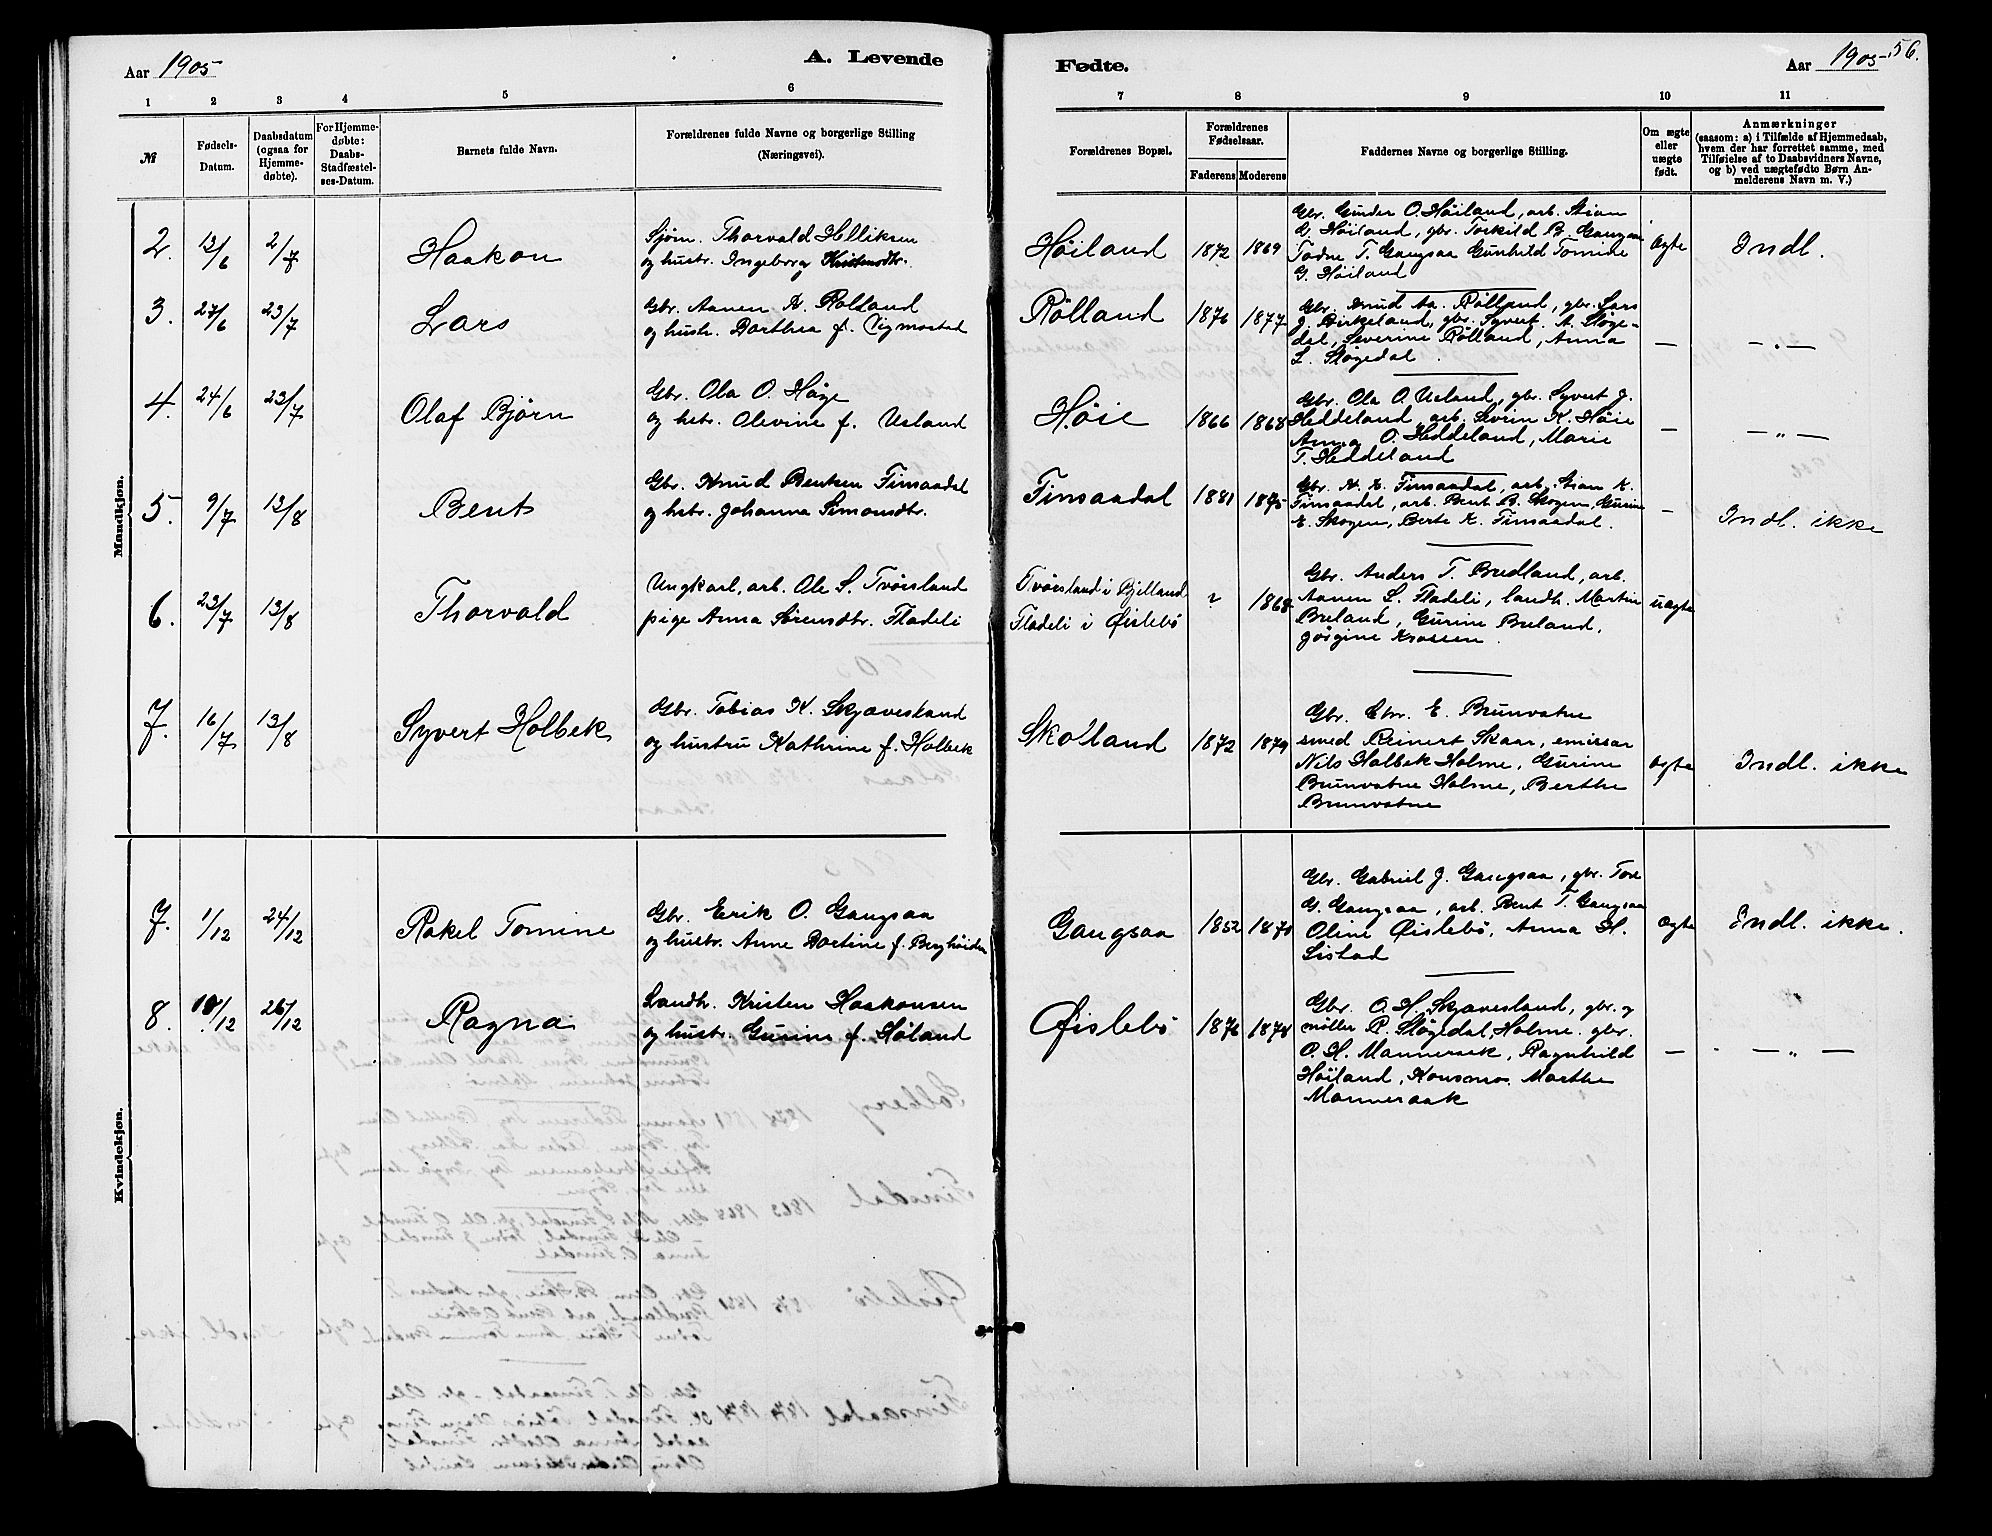 Aar 1905
A. Levende
1 2 3 4 5 6
№
Fødsels-
Datum.
Daabsdatum
(ogsaa for
Hjemme-
døbte).
For Hjemme-
døbte:
Daabs-
Stadfæstel-
ses-Datum.
Barnets fulde Navn.
Forældrenes fulde Navne og borgerlige Stilling
(Næringsvei).
Fødte.
Aar 1905
56.
7 8 9 10 11
Forældrenes Bopæl.
Forældrenes
Fødselsaar.
Faderens Moderens
Faddernes Navne og borgerlige Stilling.
Om ægte
eller
uægte
født.
Anmærkninger
(saasom: a) i Tilfælde af Hjemmedaab,
hvem der har forrettet samme, med
Tilføielse af to Daabsvidners Navne,
og b) ved uægtefødte Børn An-
melderens Navn m. V.)
Mandkjøn.
2. 13/6 2/7 Haakon
Sjøm. Thorvald Helliksen
og hustr. Ingeborg
Høiland 1872 1869
Gbr. Gunder O. Høiland, arb. Stian
G. Høiland, gbr. Torkild B. Gangsaa
Todne T. Gangsaa Gunhild Tomine
G. Høiland
ægte Indl.
3. 27/6 23/7 Lars
Gbr. Aanen K. Rølland
og hustr. Barthea f. Vigmostad
Rølland 1876 1877
Gbr. Knud Aa. Rølland, gbr. Lars
J. Birkeland, gbr. Syvert A. Støge-
dal, Severine Rølland, Anna
L. Støgedal
— — „ —
4. 24/6 23/7 Olaf Bjørn
Gbr. Ola O. Høye
og hstr. Olevine f. Usland
Høie 1866 1868
Gbr. Ola O. Usland, gbr. Syvert J.
Heddeland, arb. Sevrin K. Høie
Anna O. Heddeland, Marie
T. Heddeland
— — „ —
5. 9/7 13/8 Bent
Gbr. Knud Bentsen Finsaadal
og hstr. Johanna Simonsdtr.
Finsaadal 1881 1875
Gbr. K. K. Finsaadal, arb. Stian K.
Finsaadal, arb. Bent B. Skogen, Gurine
E. Skogen, Berte K. Finsaadal.
— Indl. ikke
6. 23/7 13/8 Thorvald
Ungkarl, arb. Ole S. Tvørsland
pige Anna Sørensdtr. Fladeli
Tvørsland i Bjelland
Fladeli i Øislebø
? 1868
Gbr. Anders T. Bredland, arb.
Aanen S. Fladeli, landh. Martin
Breland, Gurine Breland,
Jørgine Krossen.
uægte
7. 16/7 13/8 Syvert Holbek
Gbr. Tobias K. Skjævesland
og hustru Kathrine f. Holbek
Skolland 1872 1879
Gbr. Chr. E. Brunvatne
smed Reinert Skaar, emissær
Nils Holbek Holme, Gurine
Brunvatne Holme, Berthe
Brunvatne
ægte Indl. ikke
Kvindekjøn.
7. 1/12 24/12 Rakel Tomine
Gbr. Erik O. Gangsaa
og hustr. Anne Bertine f. Berghøiden
Gangsaa 1852 1870
Gbr. Gabriel J. Gangsaa, gbr. Tore
G. Gangsaa, arb. Bent T. Gangsaa
Oline Øislebø, Anna H.
Listad
ægte Indl. ikke.
8. 10/12 26/12 Ragna
Landh. Kristen Haakonsen
og hustr. Gurine f. Høiland
Øislebø 1876 1878
Gbr. O. H. Skjævesland, gbr. og
møller P. Støgedal, Holme. gbr.
O. H. Manneraak, Ragnhild
Høiland, Konsmo. Marthe
Manneraak
— — „ —